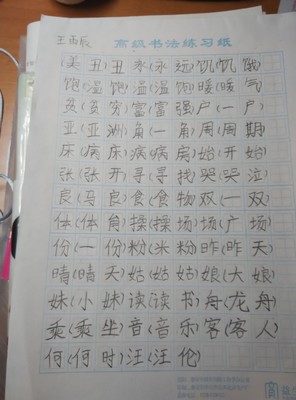 高级书法练习纸
(美丑)丑永(永远)饥(饥饿)
饱(温饱)温(温饱)暖(暖气)
贫(贫穷)富(富强)户(一户)
亚(亚洲)角(一角)周(周期)
床(病床)病(病房)始(开始)
张(张开)寻(寻找)哭(哭泣)
良(马良)食(食物)双(一双)
体(体育)操(操场)场(广场)
份(一份)粉(米粉)昨(昨天)
晴(晴天)姑(姑姑)娘(大娘)
妹(小妹)读(读书)舟(龙舟)
乘(乘坐)音(音乐)客(客人)
何(何时)汪(汪伦)